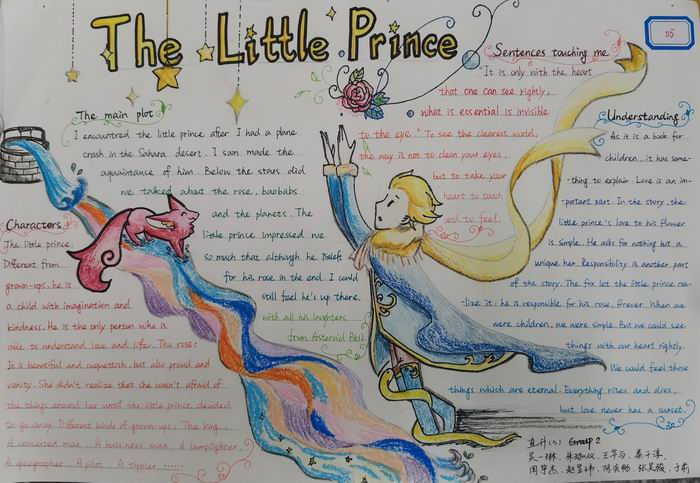 The Little Prince
05
The main plot
I encountred the little prince after I had a plane
crash in the Sahara desert. I soon made the
aquaintance of him. Below the stars did
we talked about the rose, baobabs
and the planets. The
little prince impressed me
so much that although he left
for his rose in the end. I could
still feel he's up there,
with all his laughters
from Asteroid B612.
Characters
The little prince:
Different from
grown-ups, he is
a child with imagination and
kindness. He is the only person who is
able to understand love and life. The rose:
It is beautiful and coquettish, but also proud and
vanity. She didn't realize that she wasn't afraid of
the things around her until the little prince decided
to go away. Different kinds of grown-ups: The king,
A conceited man, A bussiness man, A lamplighter,
A geographer, A pilot, A tippler ......
Sentences touching me
"It is only with the heart
that one can see rightly;
what is essential is invisible
to the eye." To see the clearest world,
the way is not to clean your eyes,
but to take your
heart to touch
and to feel.
Understanding
As it is a book for
children, it has some-
-thing to explain. Love is an im-
-portant part. In the story, the
little prince's love to his flower
is simple. He asks for nothing but a
unique her. Responsibility is another part
of the story. The fix let the little prince rea-
-lize it: he is responsible for his rose, forever. When we
were children, we were simple. But we could see
things with our heart rightly.
We could feel those
things which are eternal. Everything rises and dies,
but love never has a sunset.
Group 2